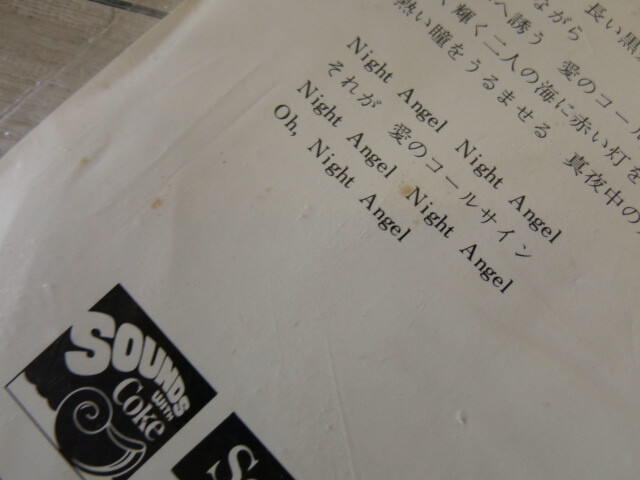 長い黒
ながら
へ誘う 愛のコール
輝く二人の海に赤い灯を
熱い瞳をうるませる 真夜中の
Night Angel Night Angel
それが 愛のコールサイン
Night Angel Night Angel
Oh, Night Angel
SOUNDS
WITH
Coke